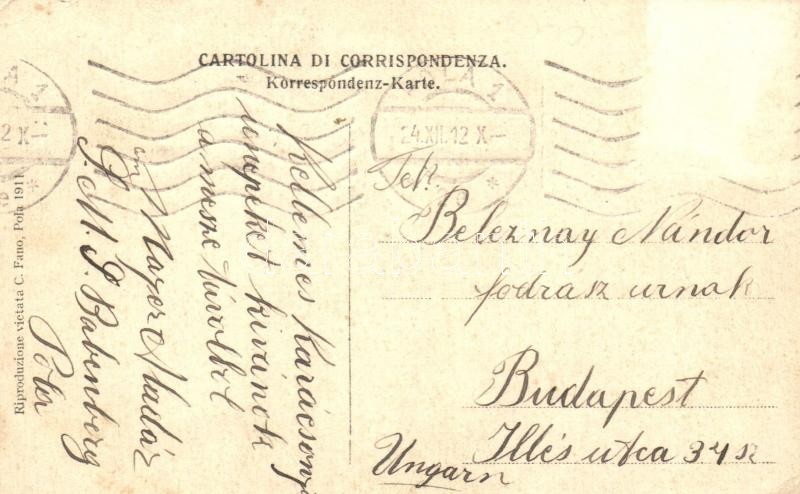 CARTOLINA DI CORRISPONDENZA.
Korrespondenz-Karte.
POLA 1
24.XII.12 X
Tek.
Beleznay Nándor
fodrász urnak
Budapest
Illés utca 34 sz
Ungarn
Kellemes karácsonyi
ünnepeket kivánok
a messze távolból
Mayer Aladár
S. M. S. Babenberg
Pola
Riproduzione vietata C. Fano, Pola 1911